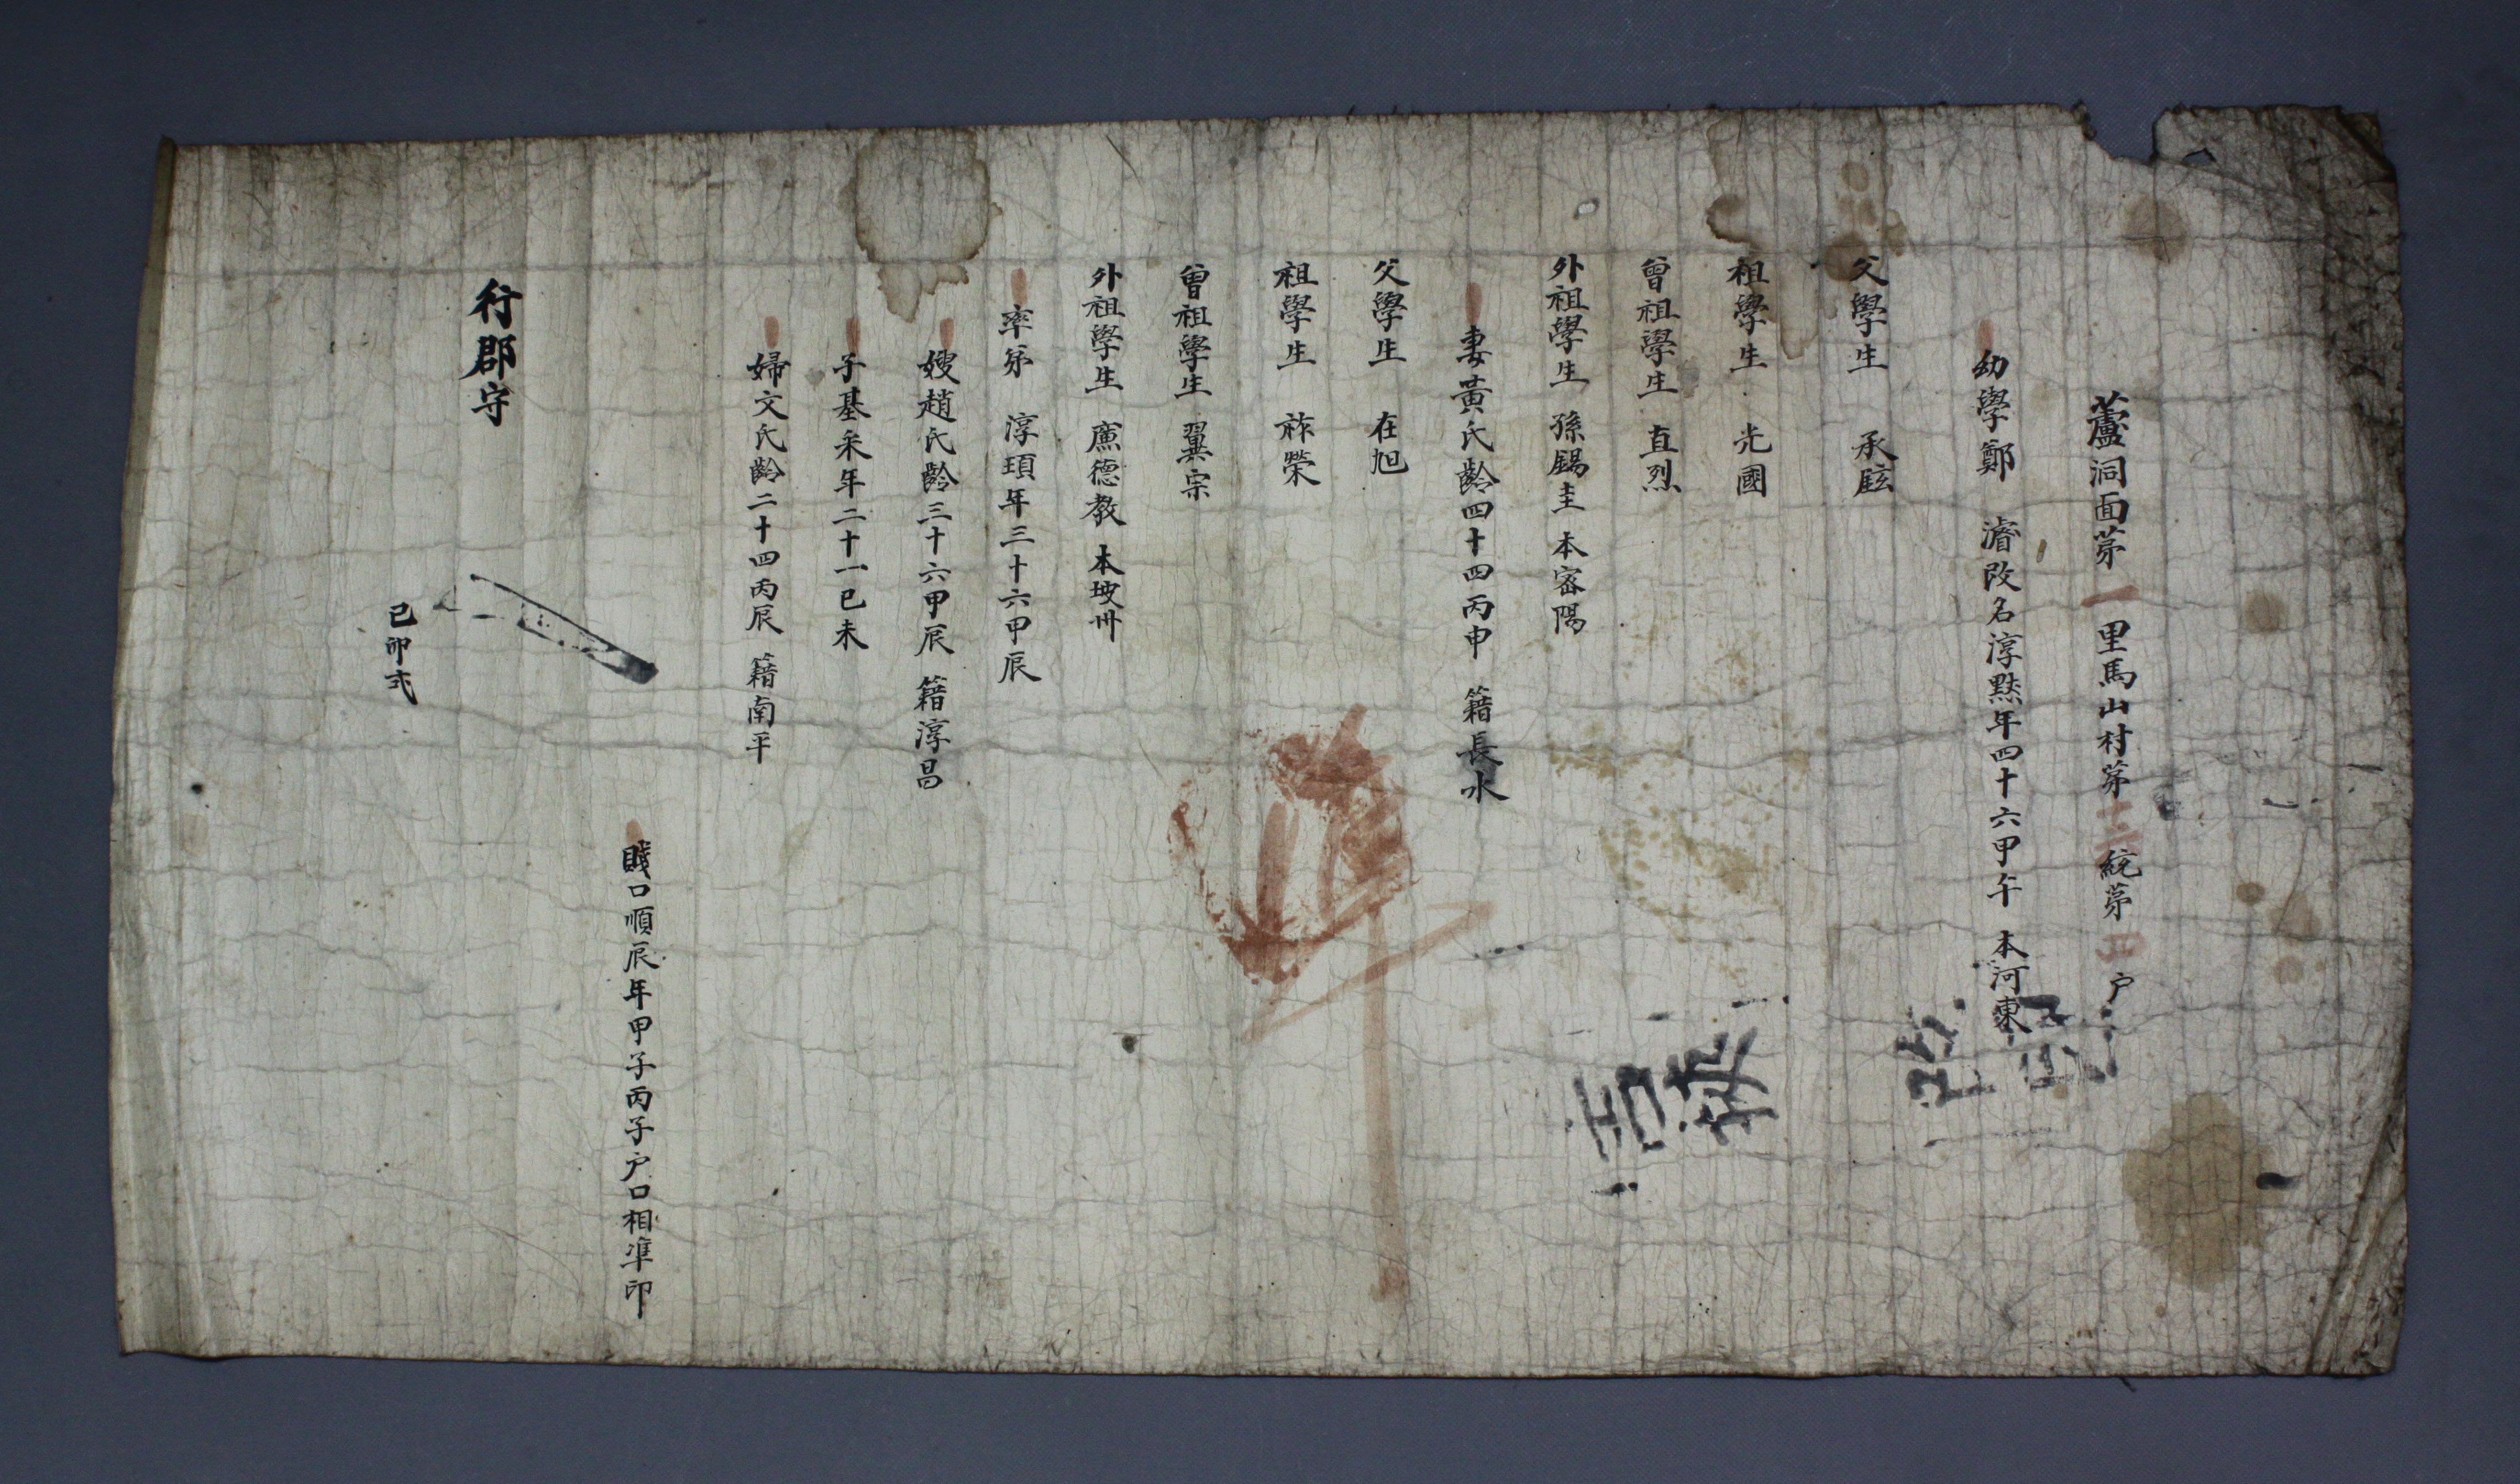 蘆洞面苐一里馬山村苐十二統苐四戶
幼學鄭 濬改名淳黙年四十六甲午 本河東
父學生 承
祖學生 光國
曾祖學生 直烈
外祖學生 孫錫圭 本密陽
妻黃氏齡四十四丙申 籍長水
父學生 在旭
祖學生 祚榮
曾祖學生 翼宗
外祖學生 廉德敎 本坡州
率弟 淳頊年三十六甲辰
嫂趙氏齡三十六甲辰 籍淳昌
子基采年二十一己未
婦文氏齡二十四丙辰 籍南平
賤口順辰年甲子丙子戶口相準印
行郡守
己卯式